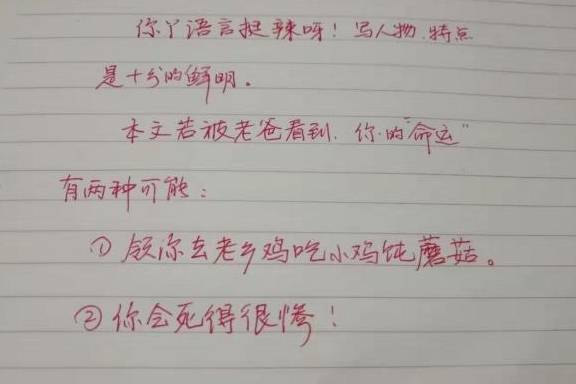 你丫语言挺辣呀！写人物.特点
是十分的鲜明。
本文若被老爸看到.你的"命运"
有两种可能：
①领你去老乡鸡吃小鸡炖蘑菇。
②你会死得很惨！